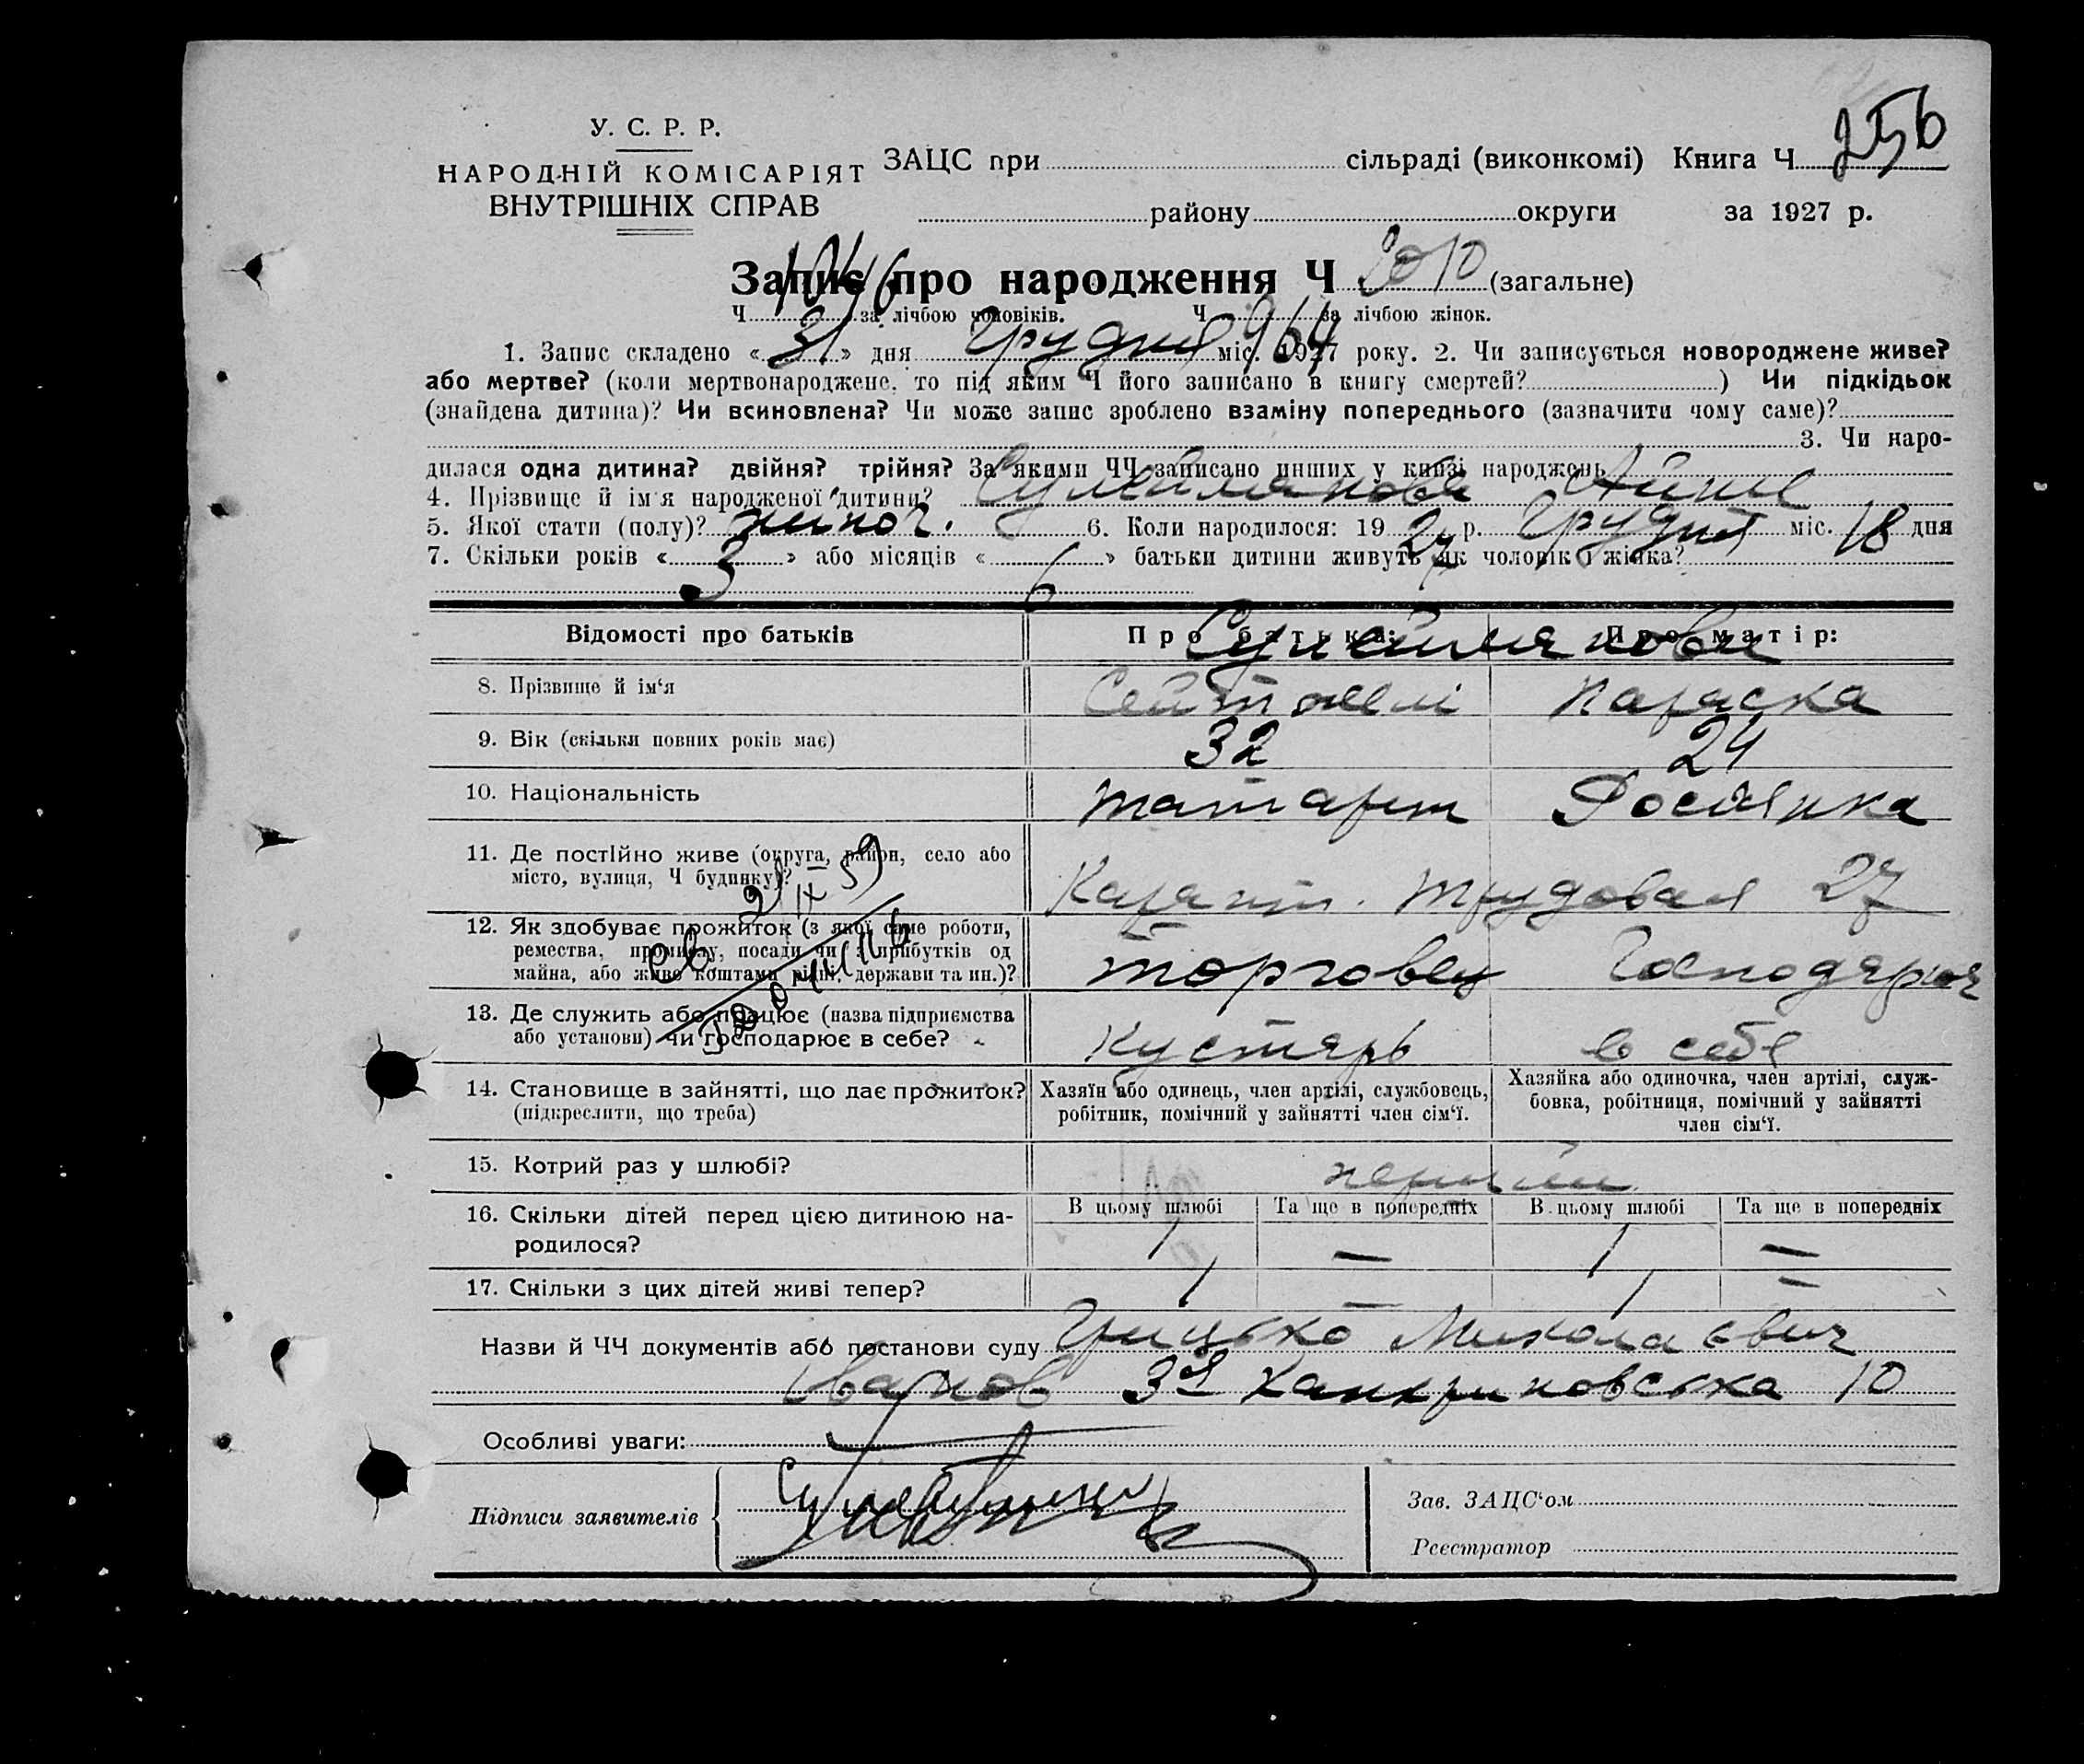 256
У. С. Р. Р.
НАРОДНІЙ КОМІСАРІЯТ
ВНУТРІШНІХ СПРАВ
ЗАЦС при сільраді (виконкомі) Книга Ч
району округи за 1927 р.
Запис про народження Ч 2010 (загальне)
1046
Ч за лічбою чоловіків. Ч 964 за лічбою жінок.
1. Запис складено « 31 » дня Грудня міс. 1927 року. 2. Чи записується новороджене живе?
або мертве? (коли мертвонароджене, то під яким Ч його записано в книгу смертей? ) Чи підкідьок
(знайдена дитина)? Чи всиновлена? Чи може запис зроблено взаміну попереднього (зазначити чому саме)?
3. Чи наро-
дилася одна дитина? двійня? трійня? За якими ЧЧ записано инших у книзі народжень
4. Прізвище й ім'я народженої дитини? Сулейманова
5. Якої статі (полу)? жіноч. 6. Коли народилося: 1927 р. Грудня міс. 18 дня
7. Скільки років « 3 » або місяців « 6 » батьки дитини живуть як чоловік і жінка?
Відомості про батьків Про батька: Про матір:
Сулейманови
8. Прізвище й ім'я Параска
9. Вік (скільки повних років має) 32 24
10. Національність татарин Росіянка
11. Де постійно живе (округа, район, село або
місто, вулиця, Ч будинку)? Карант. Трудовая 27
12. Як здобуває прожиток (з якої саме роботи,
ремества, промислу, посади чи з прибутків од
майна, або живе коштами рідні, держави та ин.)? торговец
13. Де служить або працює (назва підприємства
або установи) чи господарює в себе? Кустярь в себе
14. Становище в зайнятті, що дає прожиток?
(підкреслити, що треба)
Хазяїн або одинець, член артілі, службовець,
робітник, помічний у зайнятті член сім'ї.
Хазяйка або одиночка, член артілі, служ-
бовка, робітниця, помічний у зайнятті
член сім'ї.
15. Котрий раз у шлюбі? перший
16. Скільки дітей перед цією дитиною на-
родилося?
В цьому шлюбі Та ще в попередніх В цьому шлюбі Та ще в попередніх
1 — 1 —
17. Скільки з цих дітей живі тепер? 1 — 1 —
Назви й ЧЧ документів або постанови суду Грицько Миколаєвич
Іванов 3я Канкриновська 10
Особливі уваги:
Підписи заявителів
Зав. ЗАЦС'ом
Реєстратор